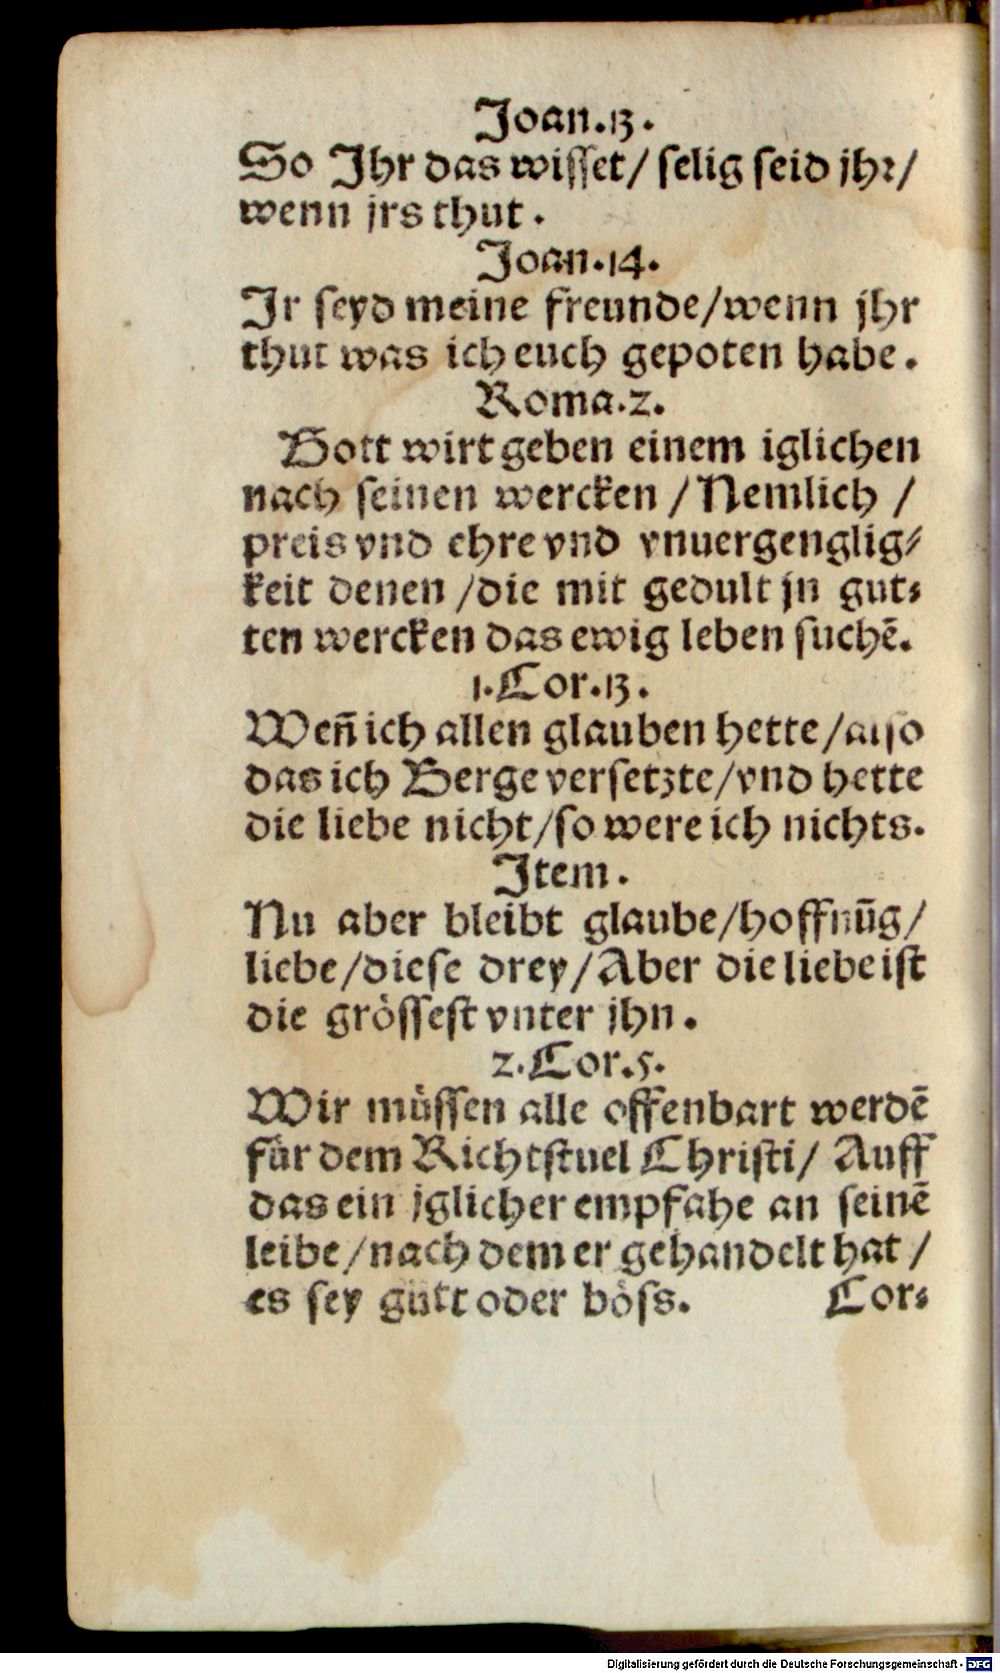 Joan.13.
So Jhr das wisset/ selig seid jhr/
wenn jrs thut.
Joan.14.
Jr seyd meine freunde/wenn jhr
thut was ich euch gepoten habe.
Roma.2.
Gott wirt geben einem iglichen
nach seinen wercken /Nemlich /
preis vnd ehre vnd vnuergenglig⸗
keit denen /die mit gedult jn gut⸗
ten wercken das ewig leben suchē.
1.Cor.13.
Weñ ich allen glauben hette/also
das ich Berge versetzte/vnd hette
die liebe nicht/so were ich nichts.
Jtem.
Nu aber bleibt glaube/hoffnūg/
liebe/diese drey/Aber die liebe ist
die grössest vnter jhn.
2.Cor.5.
Wir müssen alle offenbart werdē
für dem Richtstuel Christi/ Auff
das ein jglicher empfahe an seinē
leibe/nach dem er gehandelt hat /
es sey gutt oder böss. Cor⸗
Digitalisierung gefördert durch die Deutsche Forschungsgemeinschaft - DFG